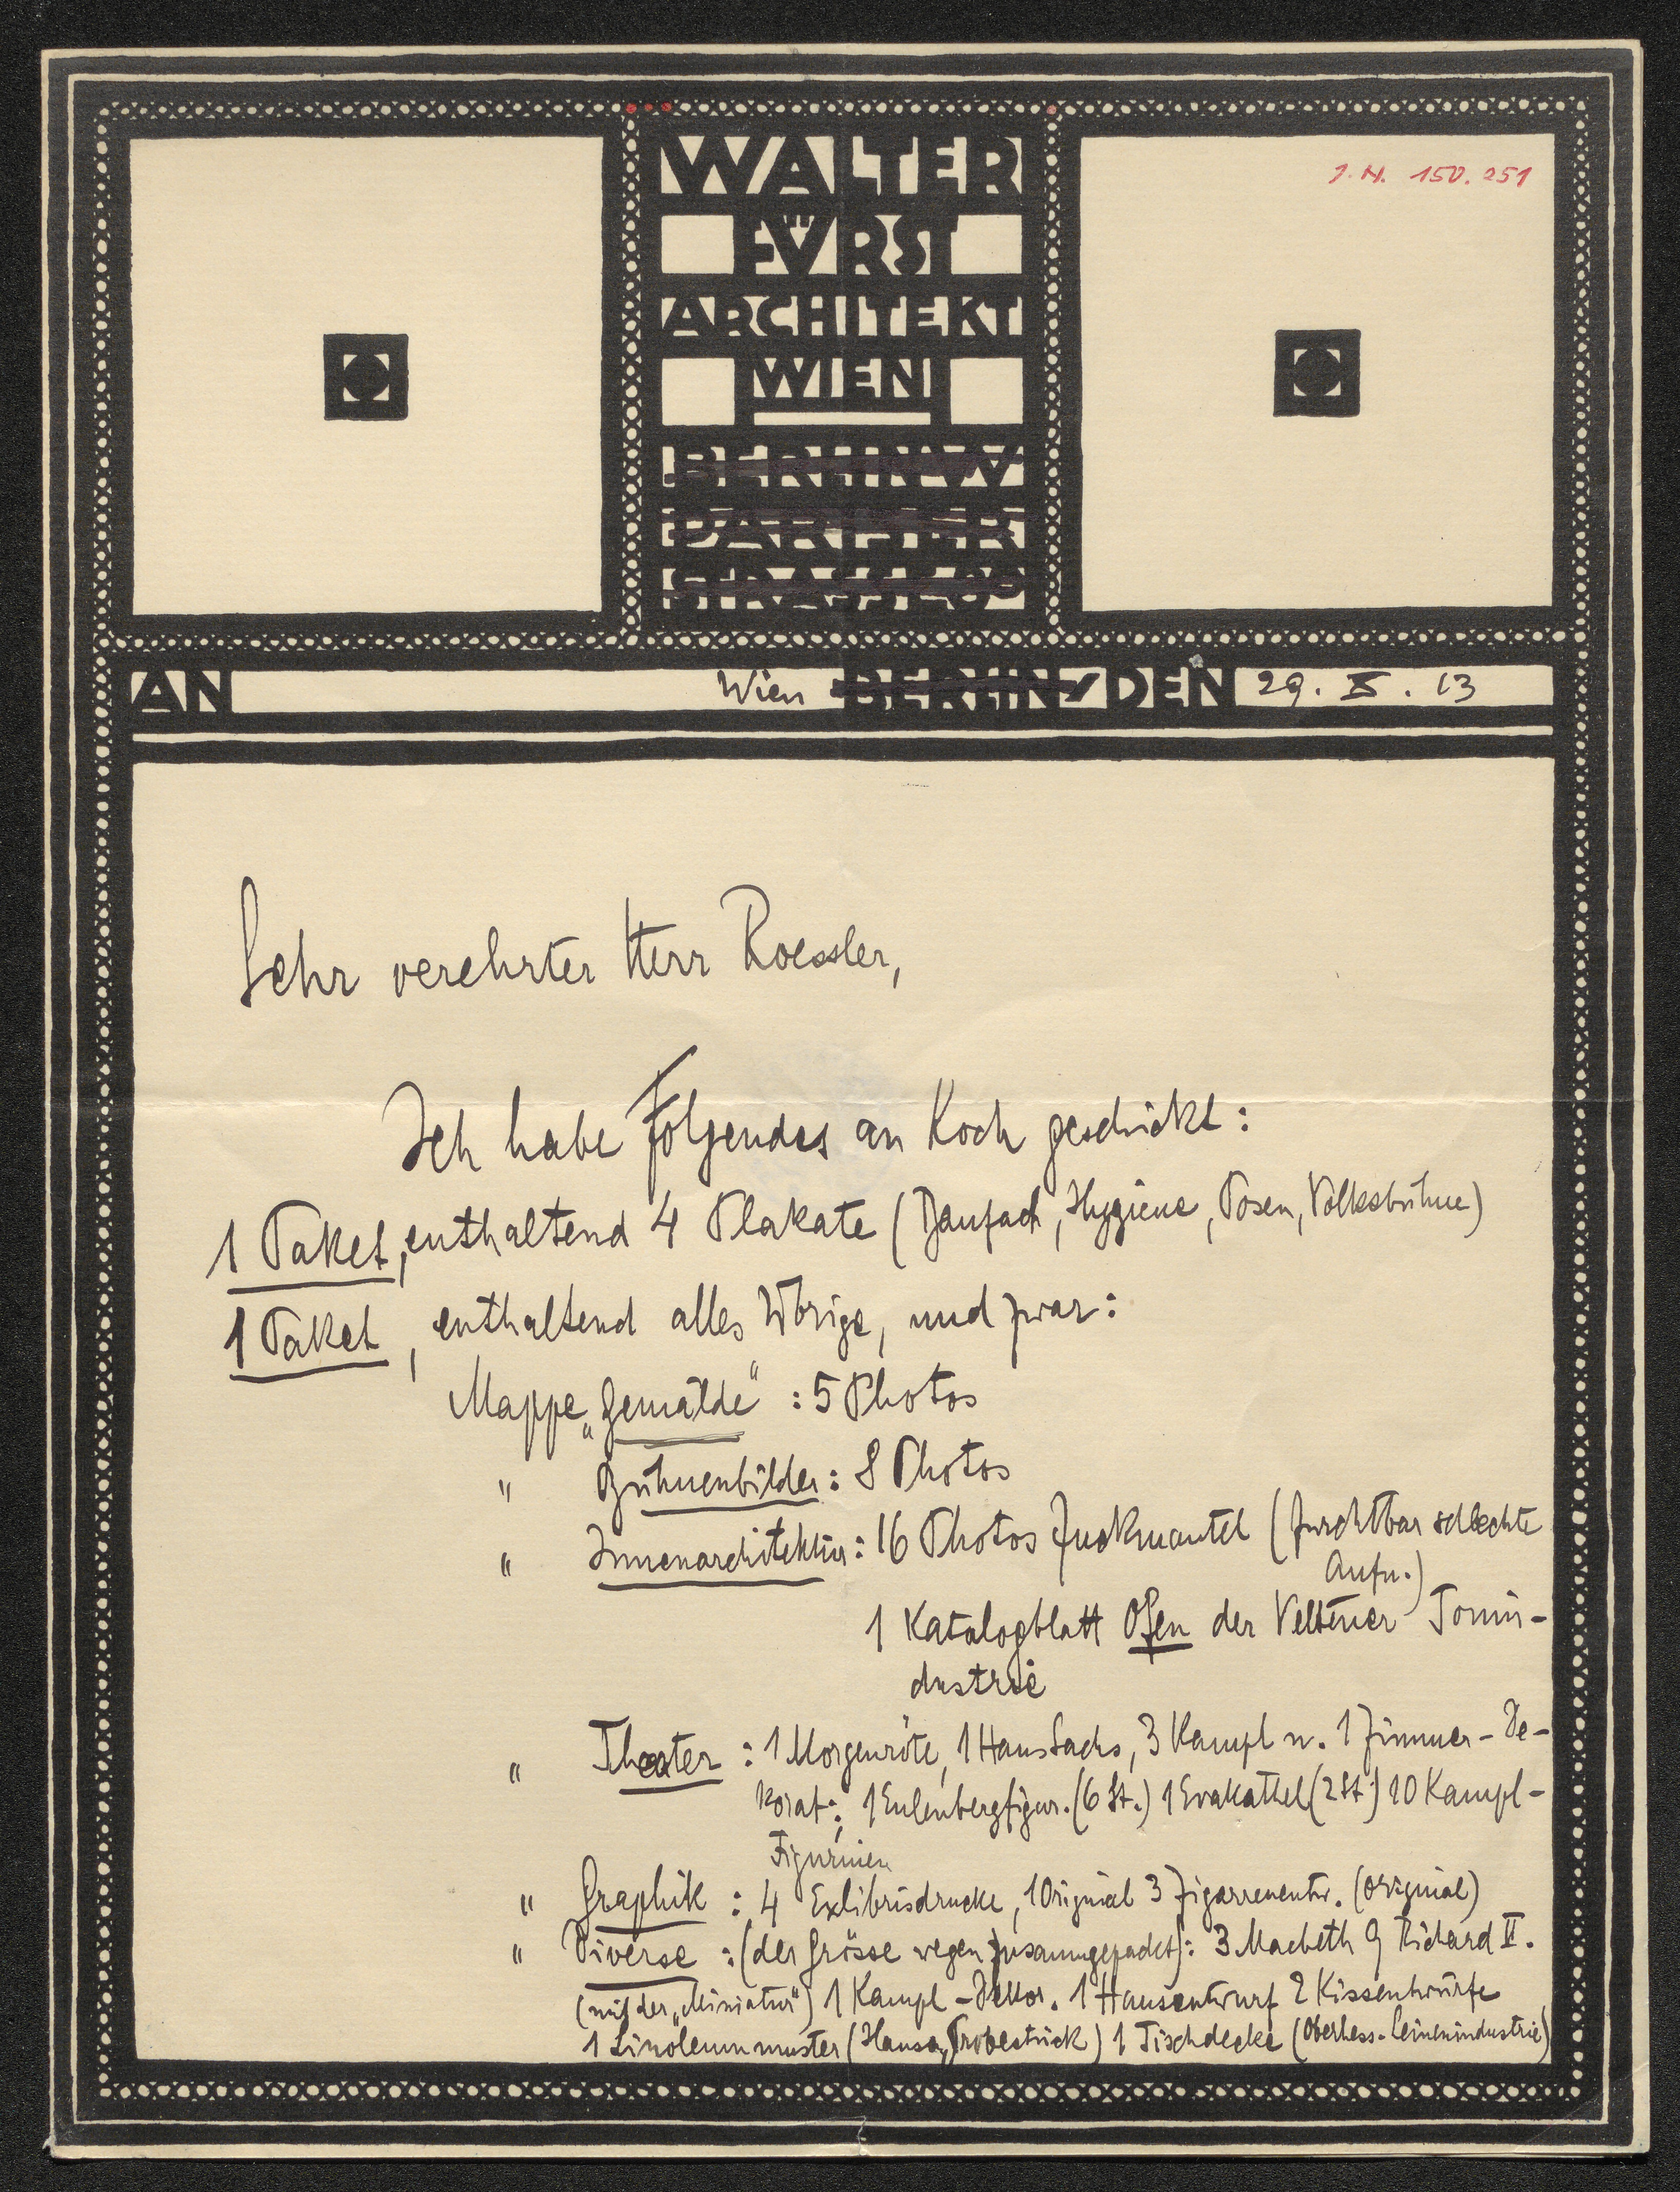 WALTER
FÜRST
ARCHITEKT
WIEN
BERLIN W
PARISER
STRASSE
J. N. 150.251
AN Wien BERLIN DEN 29. X. 13
Sehr verehrter Herr Roessler,
Ich habe Folgendes an Koch geschickt:
1 Paket, enthaltend 4 Plakate (Baufach, Hygiene, Posen, Volksbühne)
1 Paket, enthaltend alles Übrige, und zwar:
Mappe „Gemälde" : 5 Photos
" Bühnenbilder : 8 Photos
" Innenarchitektur : 16 Photos Zuckmantel (furchtbar schlechte
Aufn.)
1 Katalogblatt Ofen der Veltener Tonin-
dustrie
" Theater : 1 Morgenröte, 1 Hans Sachs, 3 Kampf u. 1 Zimmer-De-
korat.; 1 Eulenbergfigur. (6 St.) 1 (2 St.) 10 Kampf-
Figurinen
" Graphik : 4 Exlibrisdrucke, 1 Original 3 Zigarrenentw. (original)
" Diverse : (der Grösse wegen zusammengepackt): 3 Macbeth 9 Richard II.
(mit der „Miniatur") 1 Kampf-Dekor. 1 Hausentwurf 2 Kissentwürfe
1 Linoleummuster (Hansa, Probestück) 1 Tischdecke (Oberhess. Leinenindustrie)